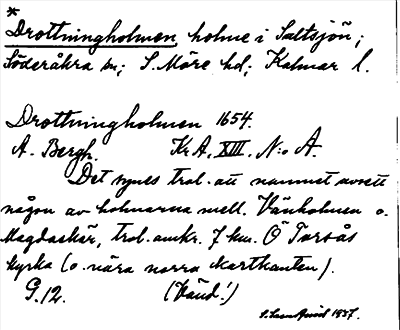 *
Drottningholmen, holme i Saltsjön;
Söderåkra sn; S. Möre hd; Kalmar l.
Drottningholmen 1654.
A. Bergh. Kr.A. XIII. N:o A.
Det synes trol. att namnet avsett
någon av holmarna mell. Vänholmen o.
Magdaskär, trol. omkr. 7 km. Ö Torsås
kyrka (o. nära norra kartkanten).
G.12. (Vänd!)
1857.